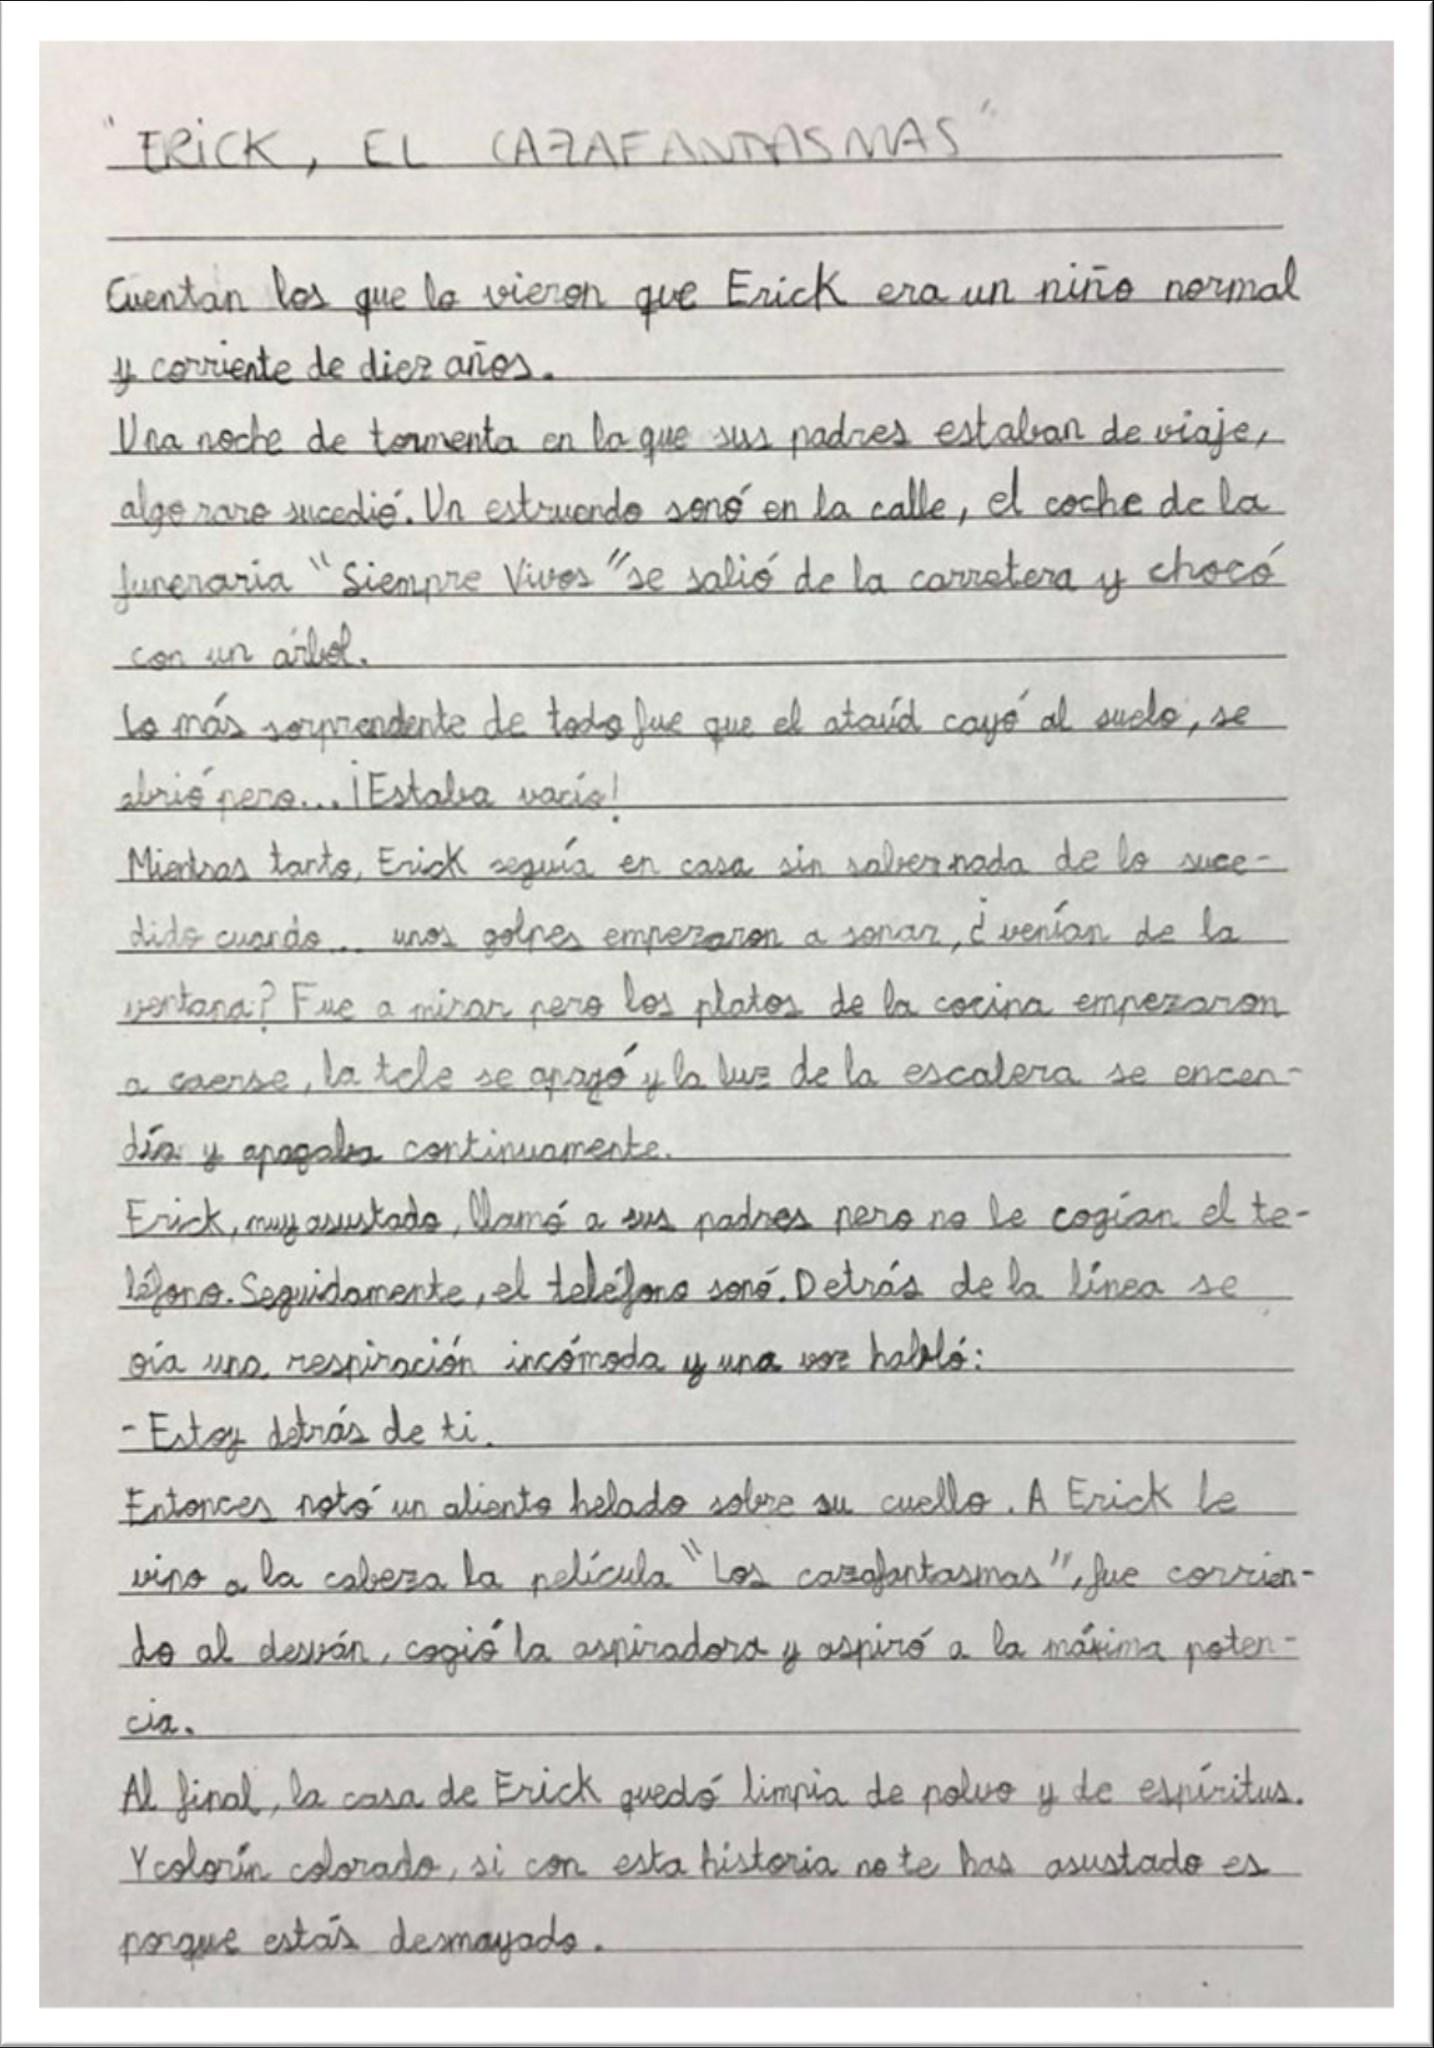 "ERiCK, EL CAZAFANTASMAS"
Cuentan los que lo vieron que Erick era un niño normal
y corriente de diez años.
Una noche de tormenta en la que sus padres estaban de viaje,
algo raro sucedió. Un estruendo sonó en la calle, el coche de la
funeraria "Siempre Vivos" se salió de la carretera y chocó
con un árbol.
Lo más sorprendente de todo fue que el ataúd cayó al suelo, se
abrió pero... ¡Estaba vacío!
Mientras tanto, Erick seguía en casa sin saber nada de lo suce-
dido cuando... unos golpes empezaron a sonar, ¿venían de la
ventana? Fue a mirar pero los platos de la cocina empezaron
a caerse, la tele se apagó y la luz de la escalera se encen-
día y apagaba continuamente.
Erick, muy asustado, llamó a sus padres pero no le cogían el te-
léfono. Seguidamente, el teléfono sonó. Detrás de la línea se
oía una respiración incómoda y una voz habló:
- Estoy detrás de ti.
Entonces notó un aliento helado sobre su cuello. A Erick le
vino a la cabeza la película "Los cazafantasmas", fue corrien-
do al desván, cogió la aspiradora y aspiró a la máxima poten-
cia.
Al final, la casa de Erick quedó limpia de polvo y de espíritus.
Y colorín colorado, si con esta historia no te has asustado es
porque estás desmayado.